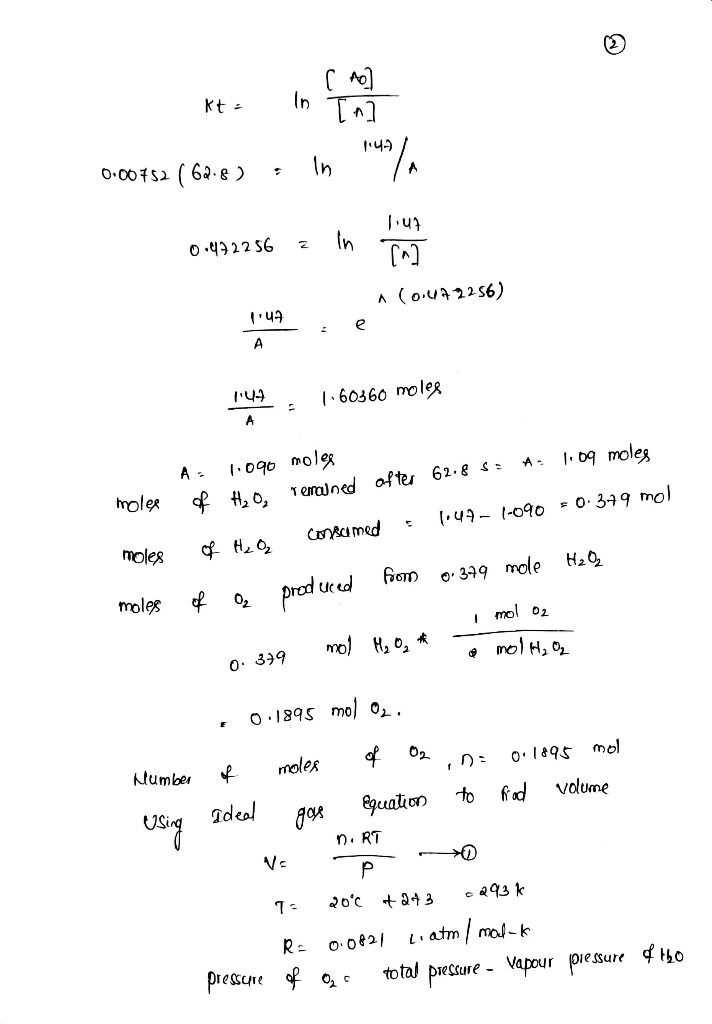 2
Kt = ln [A0]/[A]
0.00752 (62.8) = ln 1.47/A
0.472256 = ln 1.47/[A]
1.47/A = e^(0.472256)
1.47/A = 1.60360 moles
A = 1.090 moles
moles of H2O2 remained after 62.8 s = A = 1.09 moles
moles of H2O2 consumed = 1.47 - 1.090 = 0.379 mol
moles of O2 produced from 0.379 mole H2O2
0.379 mol H2O2 * 1 mol O2 / 2 mol H2O2
= 0.1895 mol O2.
Number of moles of O2, n = 0.1895 mol
Using Ideal gas Equation to find volume
V = n.RT/P → 1
T = 20°C + 273 = 293 k
R = 0.0821 L.atm / mol-k
pressure of O2 = total pressure - Vapour pressure of H2O